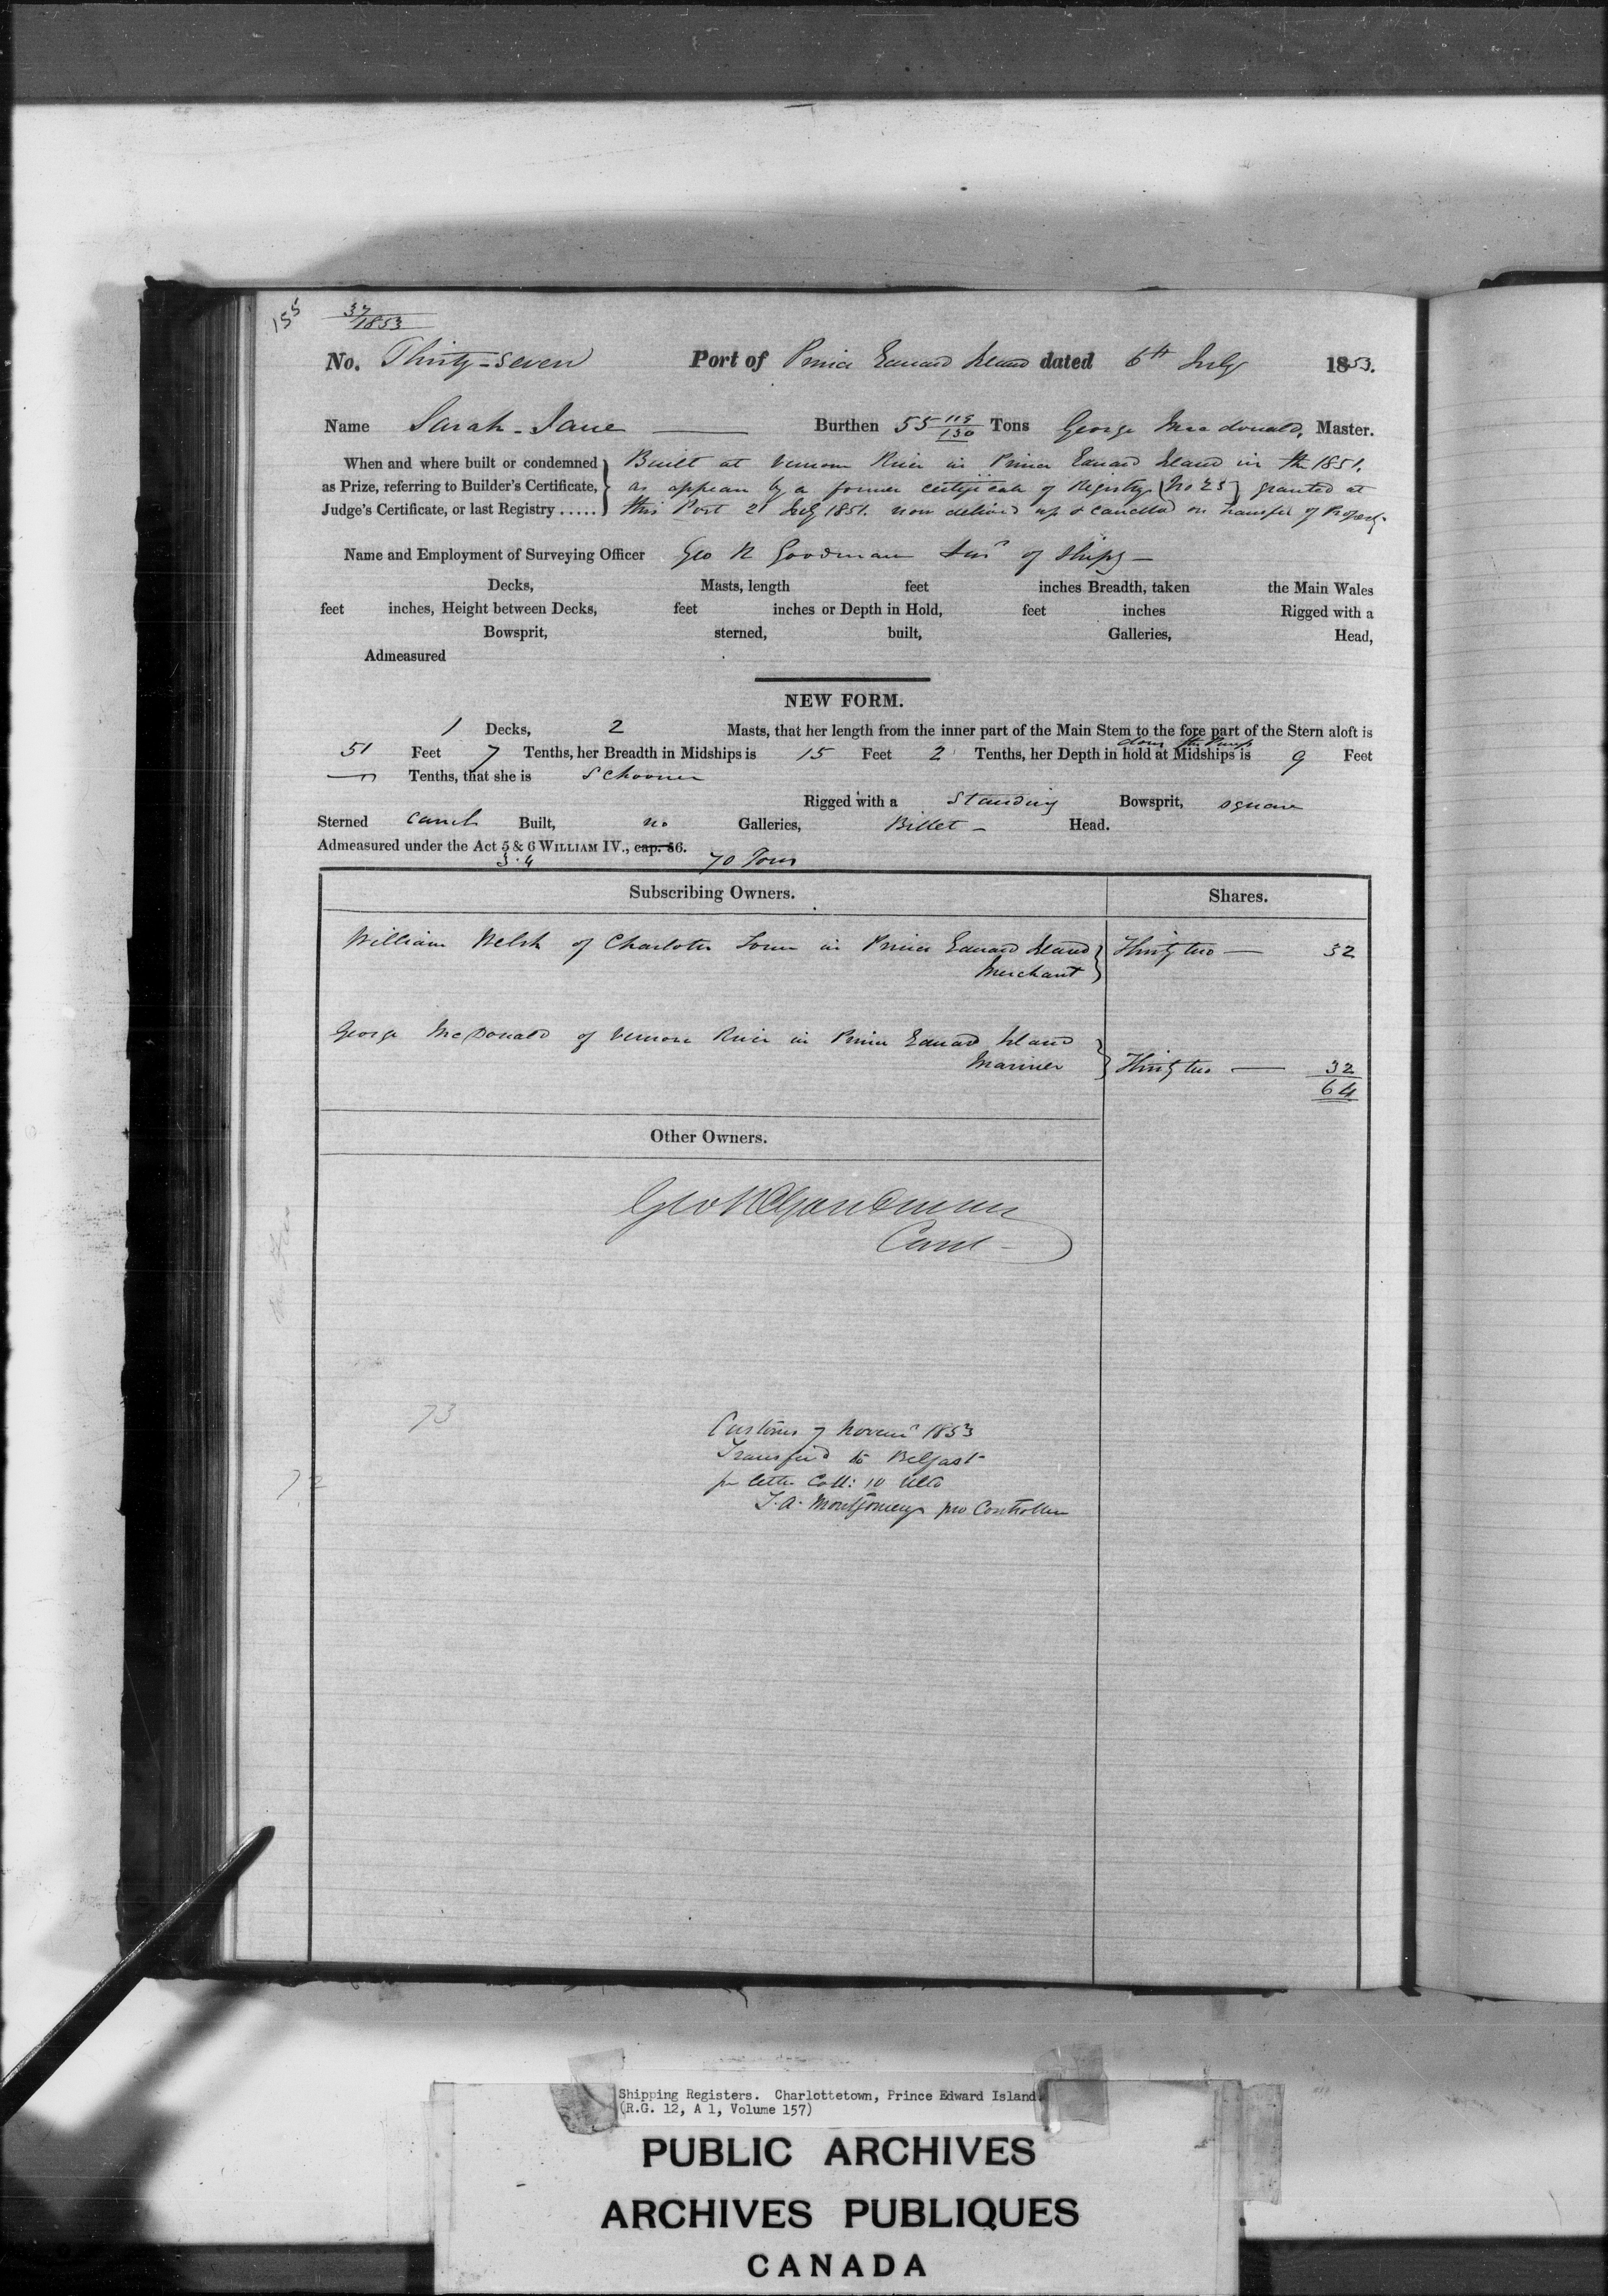 155
37/1853
No. Thirty-Seven Port of Prince Edward Island dated 6th July 1853.
Name Sarah-Jane Burthen 55 119/130 Tons George Macdonald, Master.
When and where built or condemned as Prize, referring to Builder's Certificate, Judge's Certificate, or last Registry.....
Built at Vernon River in Prince Edward Island in the 1851.
as appears by a former certificate of Registry (No 25) granted at
this Port 21 July 1851. now delivered up & cancelled on transfer of Property.
Name and Employment of Surveying Officer Geo R Goodman Survr of Ships
Decks, Masts, length feet inches Breadth, taken the Main Wales
feet inches, Height between Decks, feet inches or Depth in Hold, feet inches Rigged with a
Bowsprit, sterned, built, Galleries, Head,
Admeasured
NEW FORM.
1 Decks, 2 Masts, that her length from the inner part of the Main Stem to the fore part of the Stern aloft is
51 Feet 7 Tenths, her Breadth in Midships is 15 Feet 2 Tenths, her Depth in hold at Midships is 9 Feet
Tenths, that she is Schooner
Rigged with a Standing Bowsprit, square
Sterned Carvel Built, no Galleries, Billet Head.
Admeasured under the Act 5 & 6 WILLIAM IV., cap. 56.
3.4 70 Tons
Subscribing Owners. Shares.
William Welsh of Charlotte Town in Prince Edward Island Thirty two 32
Merchant
George McDonald of Vernon River in Prince Edward Island
Mariner Thirty two 32
64
Other Owners.
Geo R Goodman
73
Customs 7 Novemr 1853
Transferd to Belfast
per letter Coll: 10 Ulto
T. A. Montgomery pro Controller
72
Shipping Registers. Charlottetown, Prince Edward Island.
(R.G. 12, A 1, Volume 157)
PUBLIC ARCHIVES
ARCHIVES PUBLIQUES
CANADA